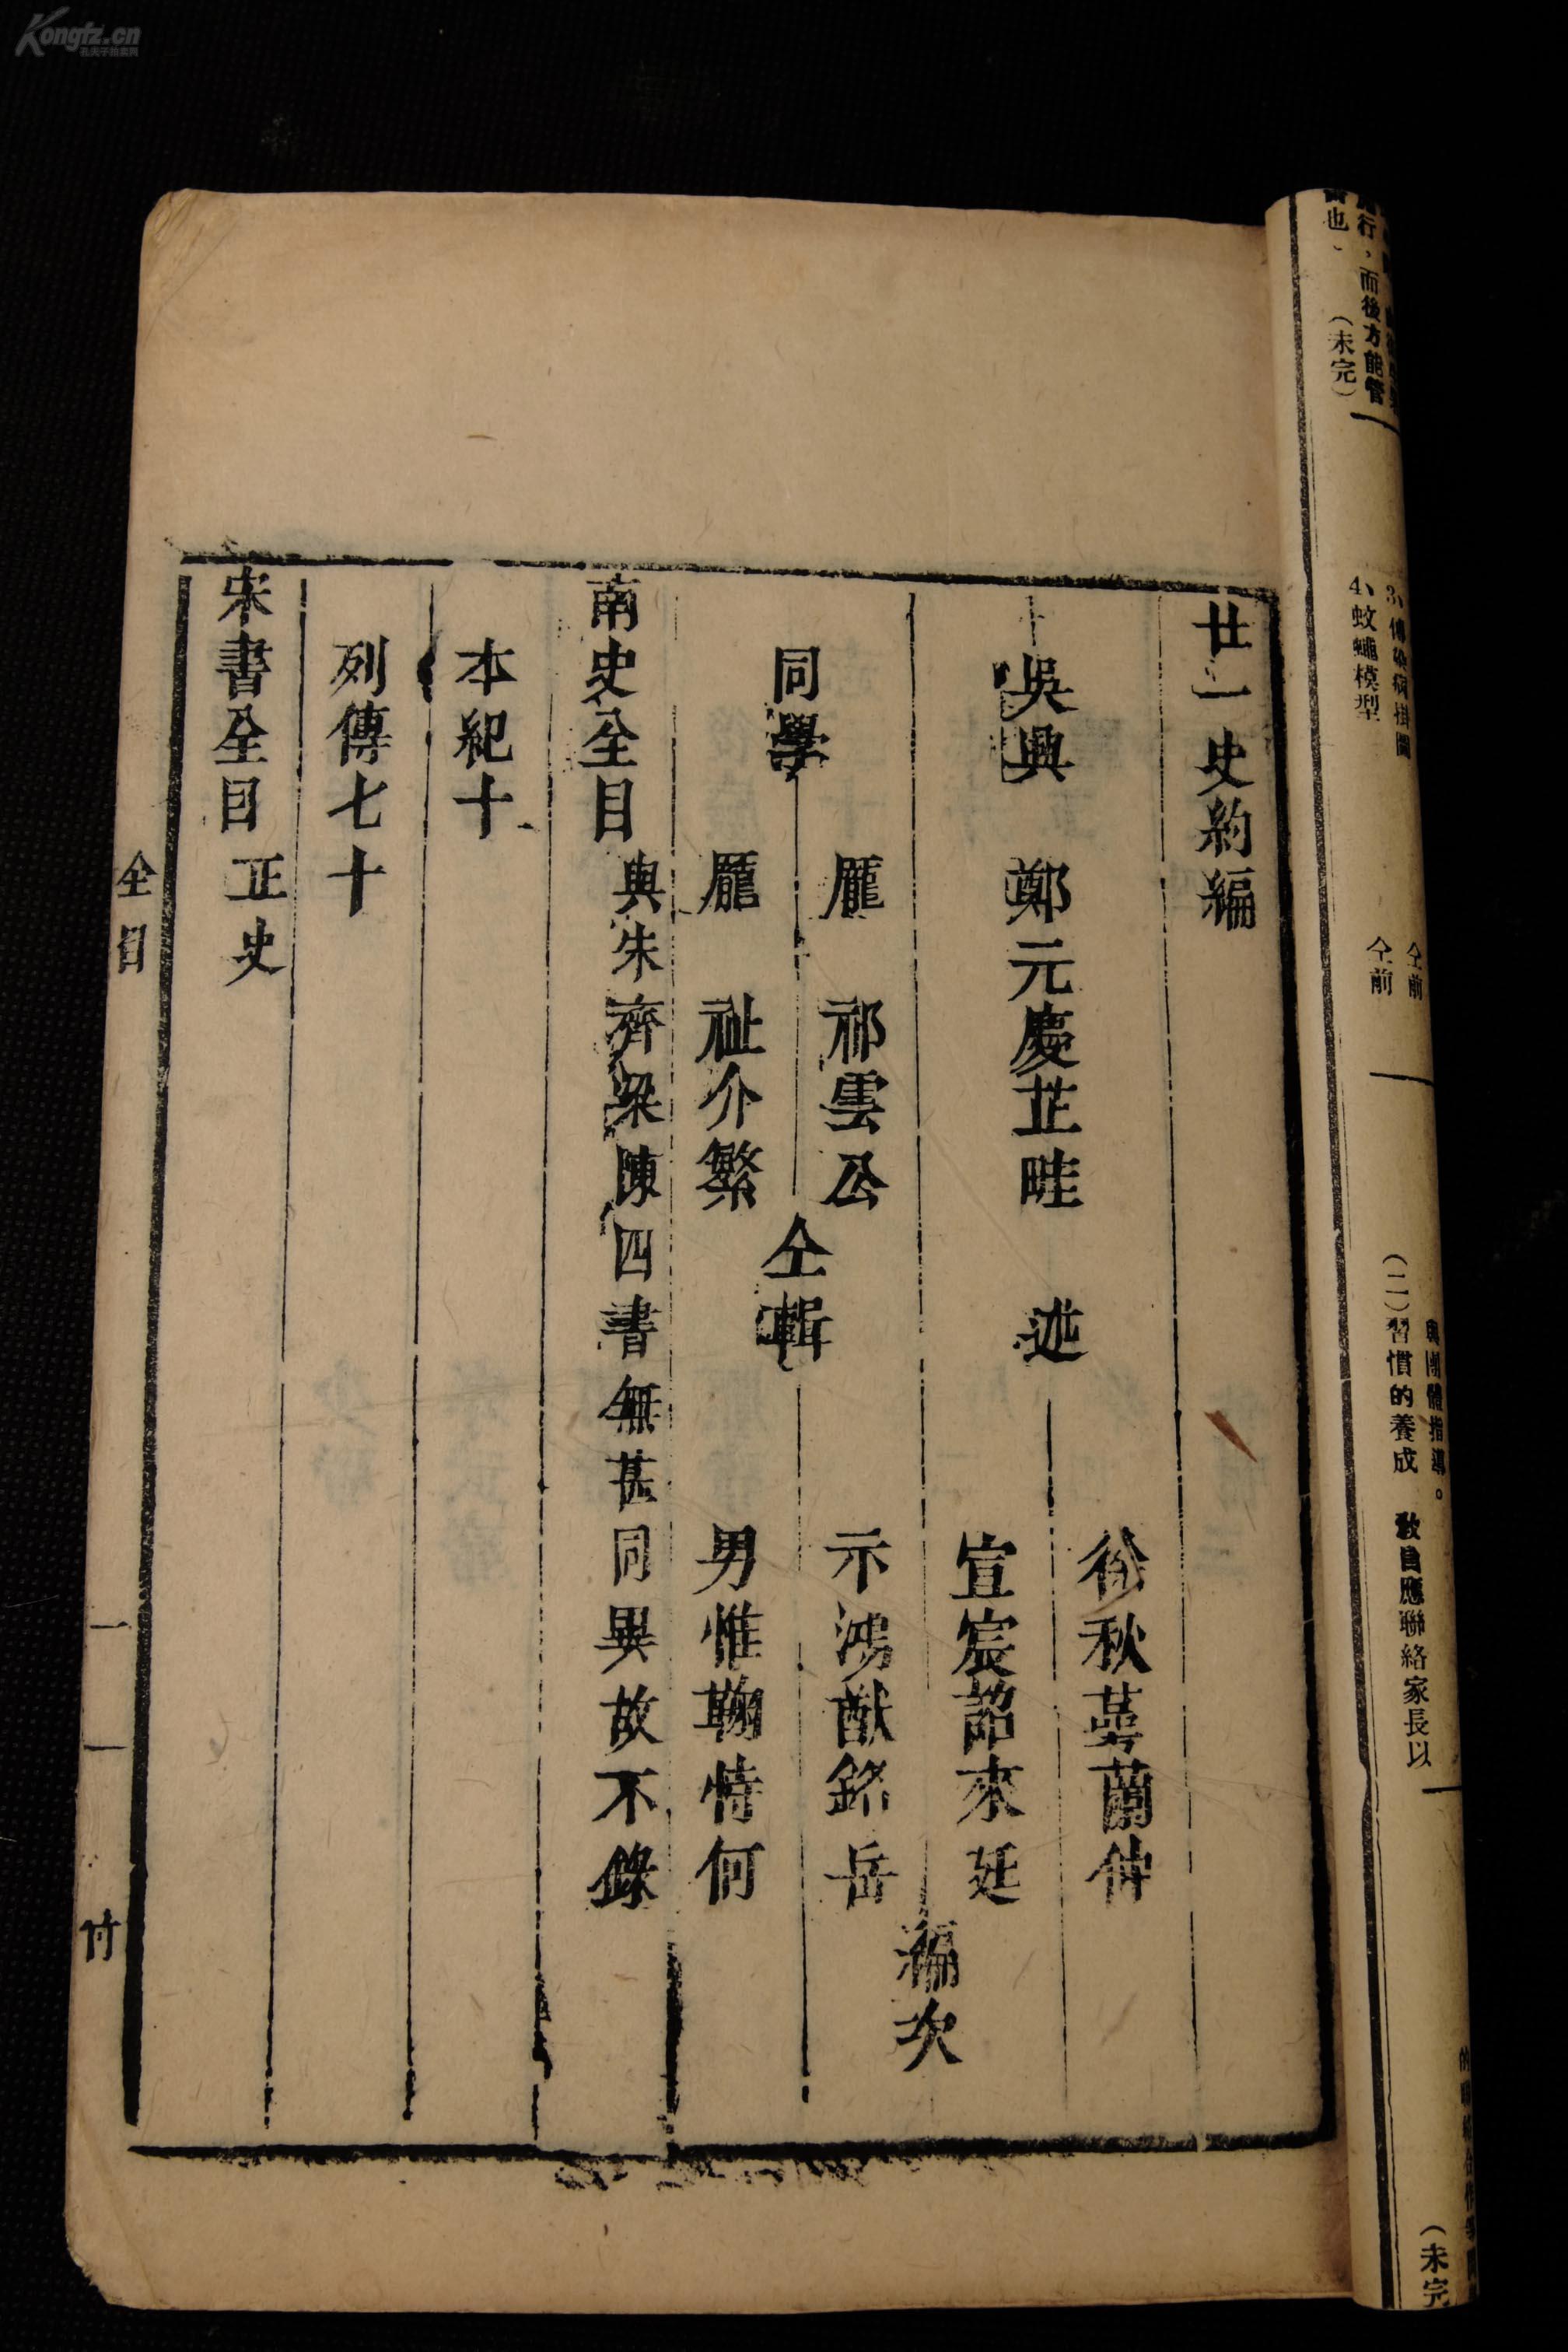 Kongfz.cn
孔夫子拍卖网
廿一史約編
吳興 鄭元慶芷畦 述
徐秋蕚蘭仲
宣宸詔來廷
同學
龎 祁雲公
龎 祉介繁
仝輯
示鴻猷銘岳
男惟鞠恃何
編次
南史全目 與宋齊梁陳四書無甚同異故不錄
本紀十
列傳七十
宋書全目 正史
全目 一 付
行,而後方能管
也、 (未完)
3、傳染病掛圖 仝前
4、蚊蠅模型 仝前
與團體指導。
(二)習慣的養成 教員應聯絡家長以
(未完